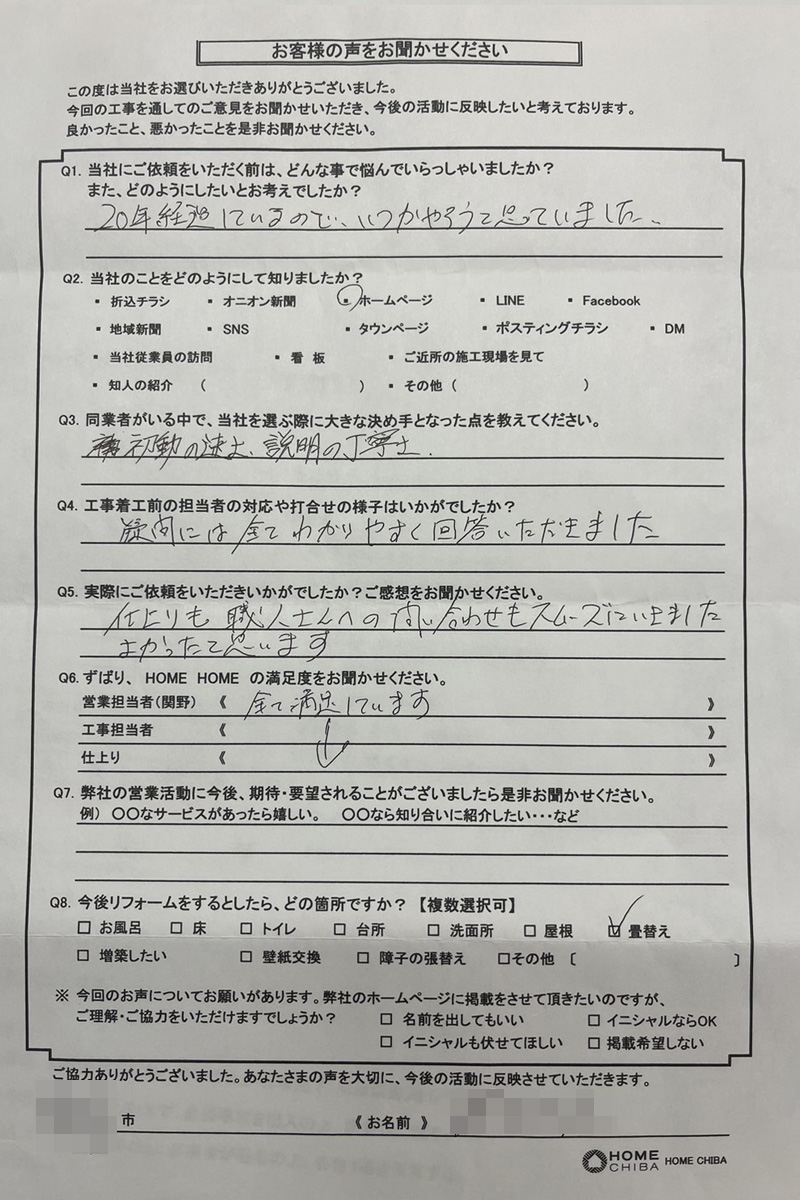 お客様の声をお聞かせください
この度は当社をお選びいただきありがとうございました。
今回の工事を通してのご意見をお聞かせいただき、今後の活動に反映したいと考えております。
良かったこと、悪かったことを是非お聞かせください。
Q1. 当社にご依頼をいただく前は、どんな事で悩んでいらっしゃいましたか？
また、どのようにしたいとお考えでしたか？
20年経過しているので、いつかやろうと思っていました、
Q2. 当社のことをどのようにして知りましたか？
▪ 折込チラシ ▪ オニオン新聞 ▪ ホームページ ▪ LINE ▪ Facebook
▪ 地域新聞 ▪ SNS ▪ タウンページ ▪ ポスティングチラシ ▪ DM
▪ 当社従業員の訪問 ▪ 看 板 ▪ ご近所の施工現場を見て
▪ 知人の紹介 （ ） ▪ その他（ ）
Q3. 同業者がいる中で、当社を選ぶ際に大きな決め手となった点を教えてください。
初動の速さ、説明の丁寧さ.
Q4. 工事着工前の担当者の対応や打合せの様子はいかがでしたか？
疑問には全てわかりやすく回答いただきました
Q5. 実際にご依頼をいただきいかがでしたか？ご感想をお聞かせください。
仕上りも職人さんへの問い合わせもスムーズにいきました
よかったと思います
Q6. ずばり、 HOME HOME の満足度をお聞かせください。
営業担当者（関野） 《 全て満足しています 》
工事担当者 《 ↓ 》
仕上り 《 》
Q7. 弊社の営業活動に今後、期待・要望されることがございましたら是非お聞かせください。
例） 〇〇なサービスがあったら嬉しい。 〇〇なら知り合いに紹介したい・・・など
Q8. 今後リフォームをするとしたら、どの箇所ですか？ 【複数選択可】
☐ お風呂 ☐ 床 ☐ トイレ ☐ 台所 ☐ 洗面所 ☐ 屋根 ☑ 畳替え
☐ 増築したい ☐ 壁紙交換 ☐ 障子の張替え ☐その他 〔 〕
※ 今回のお声についてお願いがあります。弊社のホームページに掲載をさせて頂きたいのですが、
ご理解・ご協力をいただけますでしょうか？ ☐ 名前を出してもいい ☐ イニシャルならOK
☐ イニシャルも伏せてほしい ☐ 掲載希望しない
ご協力ありがとうございました。あなたさまの声を大切に、今後の活動に反映させていただきます。
市 《 お名前 》
HOME
CHIBA HOME CHIBA